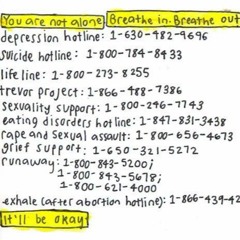 You are not alone. Breathe in. Breathe out
depression hotline: 1-630-482-9696
suicide hotline: 1-800-784-8433
life line: 1-800-273-8255
trevor project: 1-866-488-7386
sexuality support: 1-800-246-7743
eating disorders hotline: 1-847-831-3438
rape and sexual assault: 1-800-656-4673
grief support: 1-650-321-5272
runaway: 1-800-843-5200;
1-800-843-5678;
1-800-621-4000
exhale (after abortion hotline): 1-866-439-42
It'll be okay